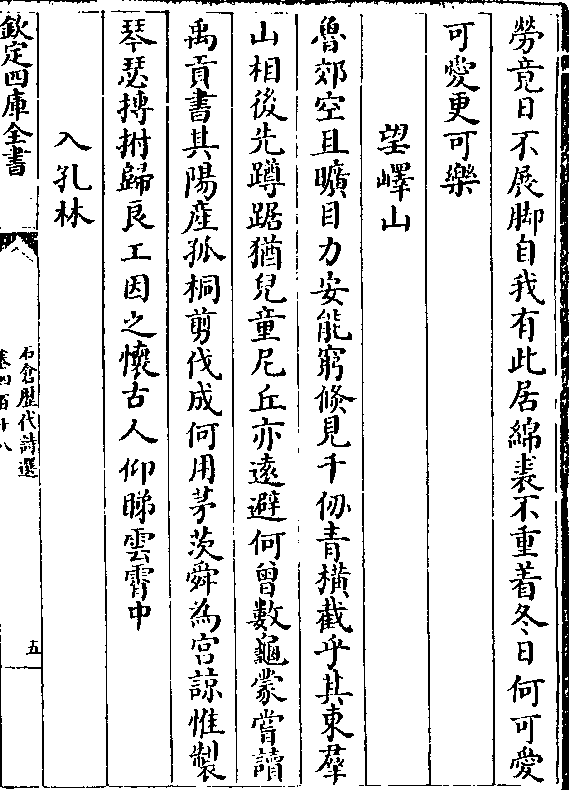 勞竟日不展脚自我有此居綿裘不重着冬日何可愛
可愛更可樂
望嶧山
魯郊空且曠目力安能窮倐見千仞青横截乎其東羣
山相後先蹲踞猶兒童尼丘亦逺避何曾數龜蒙嘗讀
禹貢書其陽產孤桐剪伐成何用茅茨舜為宫諒惟製
琴瑟摶拊歸良工因之懷古人仰睇雲霄中
入孔林
欽定四庫全書
石倉歷代詩選
卷四百十八
五